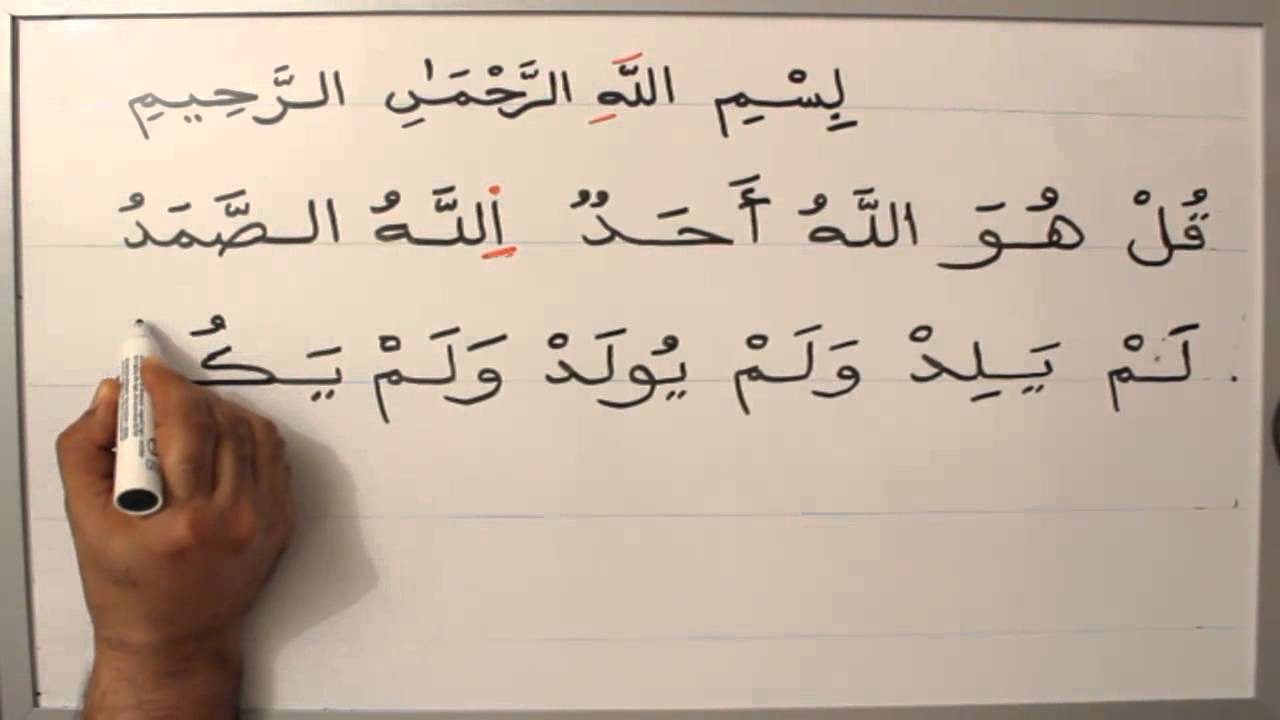 بِسْمِ اللَّهِ الرَّحْمَٰنِ الرَّحِيمِ
قُلْ هُوَ اللَّهُ أَحَدٌ اِللَّهُ الصَّمَدُ
لَمْ يَلِدْ وَلَمْ يُولَدْ وَلَمْ يَكُ